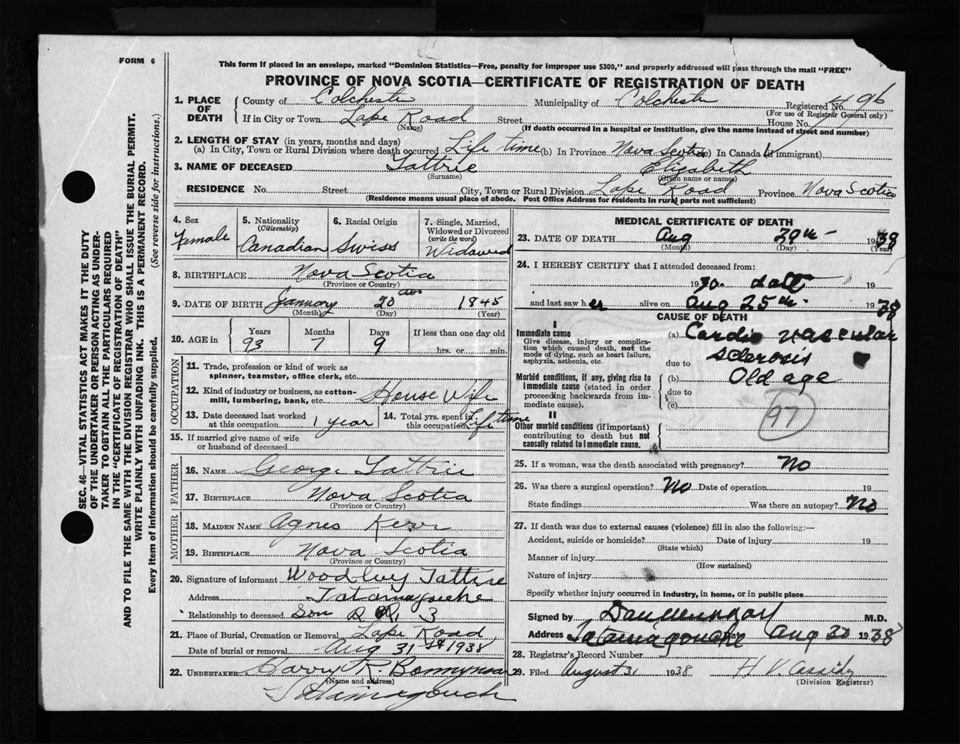 FORM 6
This form if placed in an envelope, marked "Dominion Statistics—Free, penalty for improper use $300," and properly addressed will pass through the mail "FREE"
PROVINCE OF NOVA SCOTIA—CERTIFICATE OF REGISTRATION OF DEATH
1. PLACE OF DEATH County of Colchester Municipality of Colchester Registered No. 496
(For use of Registrar General only)
If in City or Town Lape Road Street House No.
(Name) (If death occurred in a hospital or institution, give the name instead of street and number)
2. LENGTH OF STAY (in years, months and days)
(a) In City, Town or Rural Division where death occurred Life time (b) In Province Nova Scotia (c) In Canada (if immigrant)
3. NAME OF DECEASED Tattrie Elizabeth
(Surname) (Given name or names)
RESIDENCE No. Street City, Town or Rural Division Lape Road Province Nova Scotia
(Residence means usual place of abode. Post Office Address for residents in rural parts not sufficient)
4. Sex Female
5. Nationality (Citizenship) Canadian
6. Racial Origin Swiss
7. Single, Married, Widowed or Divorced (write the word) Widowed
8. BIRTHPLACE Nova Scotia
(Province or Country)
9. DATE OF BIRTH January 20 1845
(Month) (Day) (Year)
10. AGE in Years Months Days If less than one day old
93 7 9 hrs. or min.
OCCUPATION
11. Trade, profession or kind of work as spinner, teamster, office clerk, etc.
12. Kind of industry or business, as cotton-mill, lumbering, bank, etc. House Wife
13. Date deceased last worked at this occupation 1 year
14. Total yrs. spent in this occupation Life time
15. If married give name of wife or husband of deceased
FATHER
16. NAME George Tattrie
17. BIRTHPLACE Nova Scotia
(Province or Country)
MOTHER
18. MAIDEN NAME Agnes Kerr
19. BIRTHPLACE Nova Scotia
(Province or Country)
20. Signature of informant Tattrie
Address Tatamagouche
Relationship to deceased Son R R 3
21. Place of Burial, Cremation or Removal Lape Road
Date of burial or removal Aug 31 st 1938
22. UNDERTAKER Harry R
(Name and address)
Tatamagouche
MEDICAL CERTIFICATE OF DEATH
23. DATE OF DEATH Aug 29th 1938
(Month) (Day) (Year)
24. I HEREBY CERTIFY that I attended deceased from:
1930 19
and last saw her alive on Aug 25th 1938
CAUSE OF DEATH
I
Immediate cause
Give disease, injury or complication which caused death, not the mode of dying, such as heart failure, asphyxia, asthenia, etc.
(a) Cardio vascular sclerosis
due to
Morbid conditions, if any, giving rise to immediate cause (stated in order proceeding backwards from immediate cause).
(b) Old age
due to
(c)
97
II
Other morbid conditions (if important) contributing to death but not causally related to immediate cause.
25. If a woman, was the death associated with pregnancy? No
26. Was there a surgical operation? No Date of operation 19
State findings Was there an autopsy? No
27. If death was due to external causes (violence) fill in also the following:—
Accident, suicide or homicide? Date of injury 19
(State which)
Manner of injury
(How sustained)
Nature of injury
Specify whether injury occurred in industry, in home, or in public place
Signed by M.D.
Address Tatamagouche Aug 30 1938
28. Registrar's Record Number
29. Filed August 31 1938 H. V. Cassidy
(Division Registrar)
SEC. 46—VITAL STATISTICS ACT MAKES IT THE DUTY
OF THE UNDERTAKER OR PERSON ACTING AS UNDER-
TAKER TO OBTAIN ALL THE PARTICULARS REQUIRED
IN THE "CERTIFICATE OF REGISTRATION OF DEATH"
AND TO FILE THE SAME WITH THE DIVISION REGISTRAR WHO SHALL ISSUE THE BURIAL PERMIT.
WRITE PLAINLY WITH UNFADING INK. THIS IS A PERMANENT RECORD.
Every item of Information should be carefully supplied. (See reverse side for instructions.)